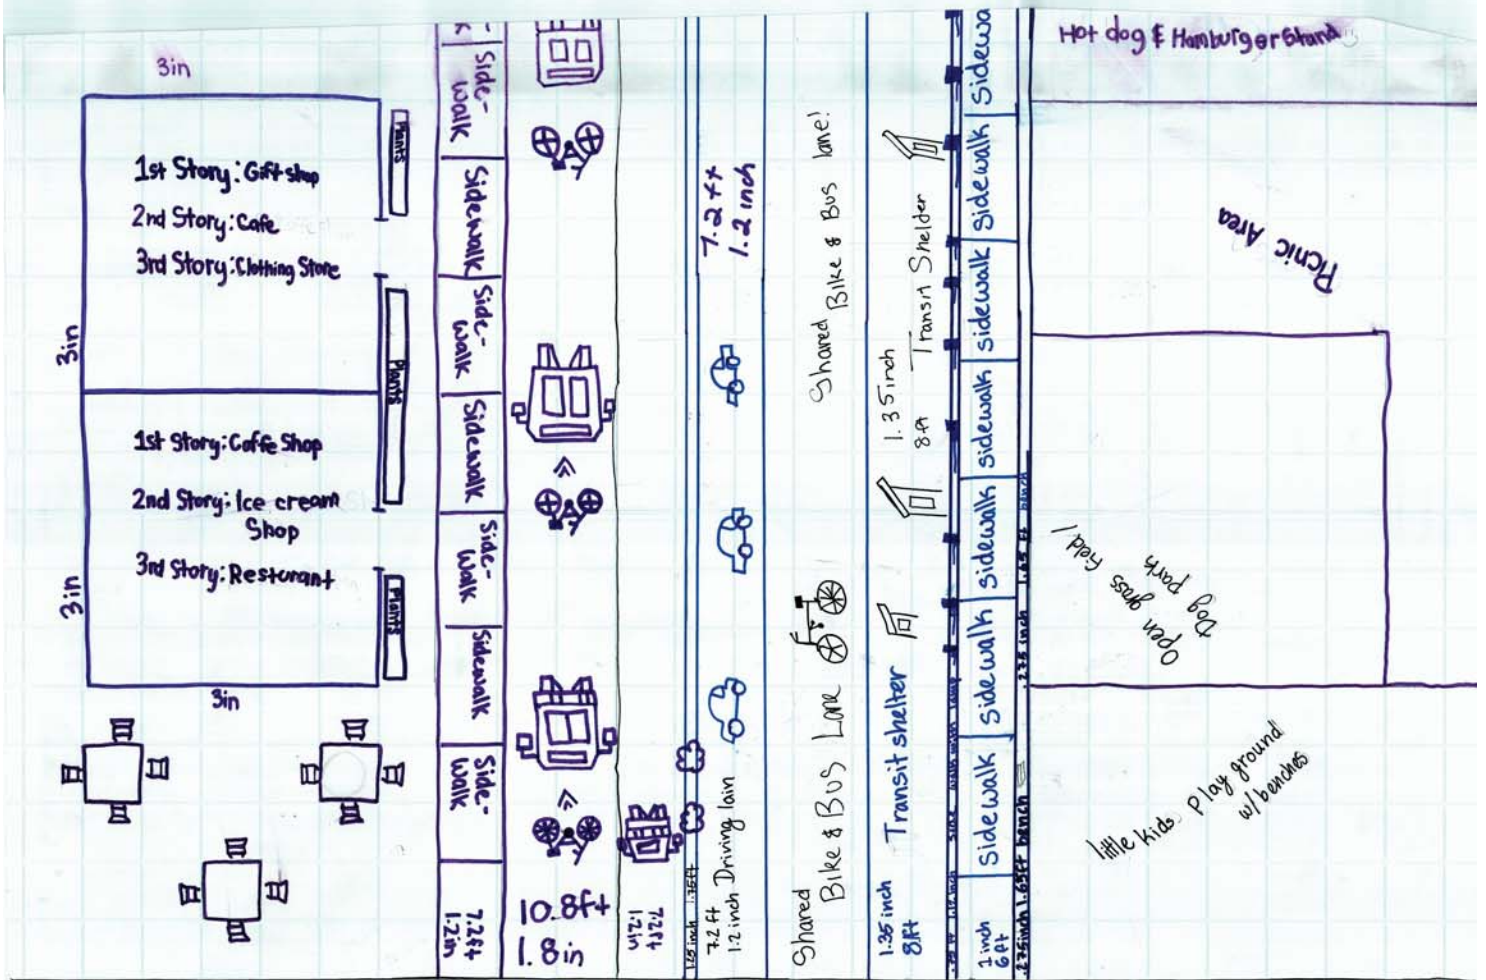 3in
1st Story: Gift shop
2nd Story: Cafe
3rd Story: Clothing Store
3in
Plants
Plants
1st Story: Coffe Shop
2nd Story: Ice cream
Shop
3rd Story: Resturant
3in
Plants
3in
Side-
walk
Sidewalk
Side-
walk
Sidewalk
Side-
walk
Sidewalk
Side-
walk
7.2ft
1.2in
10.8ft
1.8in
7.2ft
1.2in
7.2 ft
1.2 inch
7.2 ft
1.2 inch Driving lain
Shared Bike & Bus lane!
Shared
Bike & Bus Lane
Transit Shelter
1.35 inch
8ft
Transit shelter
1.35 inch
8ft
Sidewa
Sidewalk
sidewalk
sidewalk
sidewalk
sidewalk
sidewalk
1 inch
6ft
.275 inch 1.65 ft bench
.275 inch 1.65ft bench
Hot dog & Hamburger Stand
Picnic Area
Open grass field!
Dog park
little kids play ground
w/benches